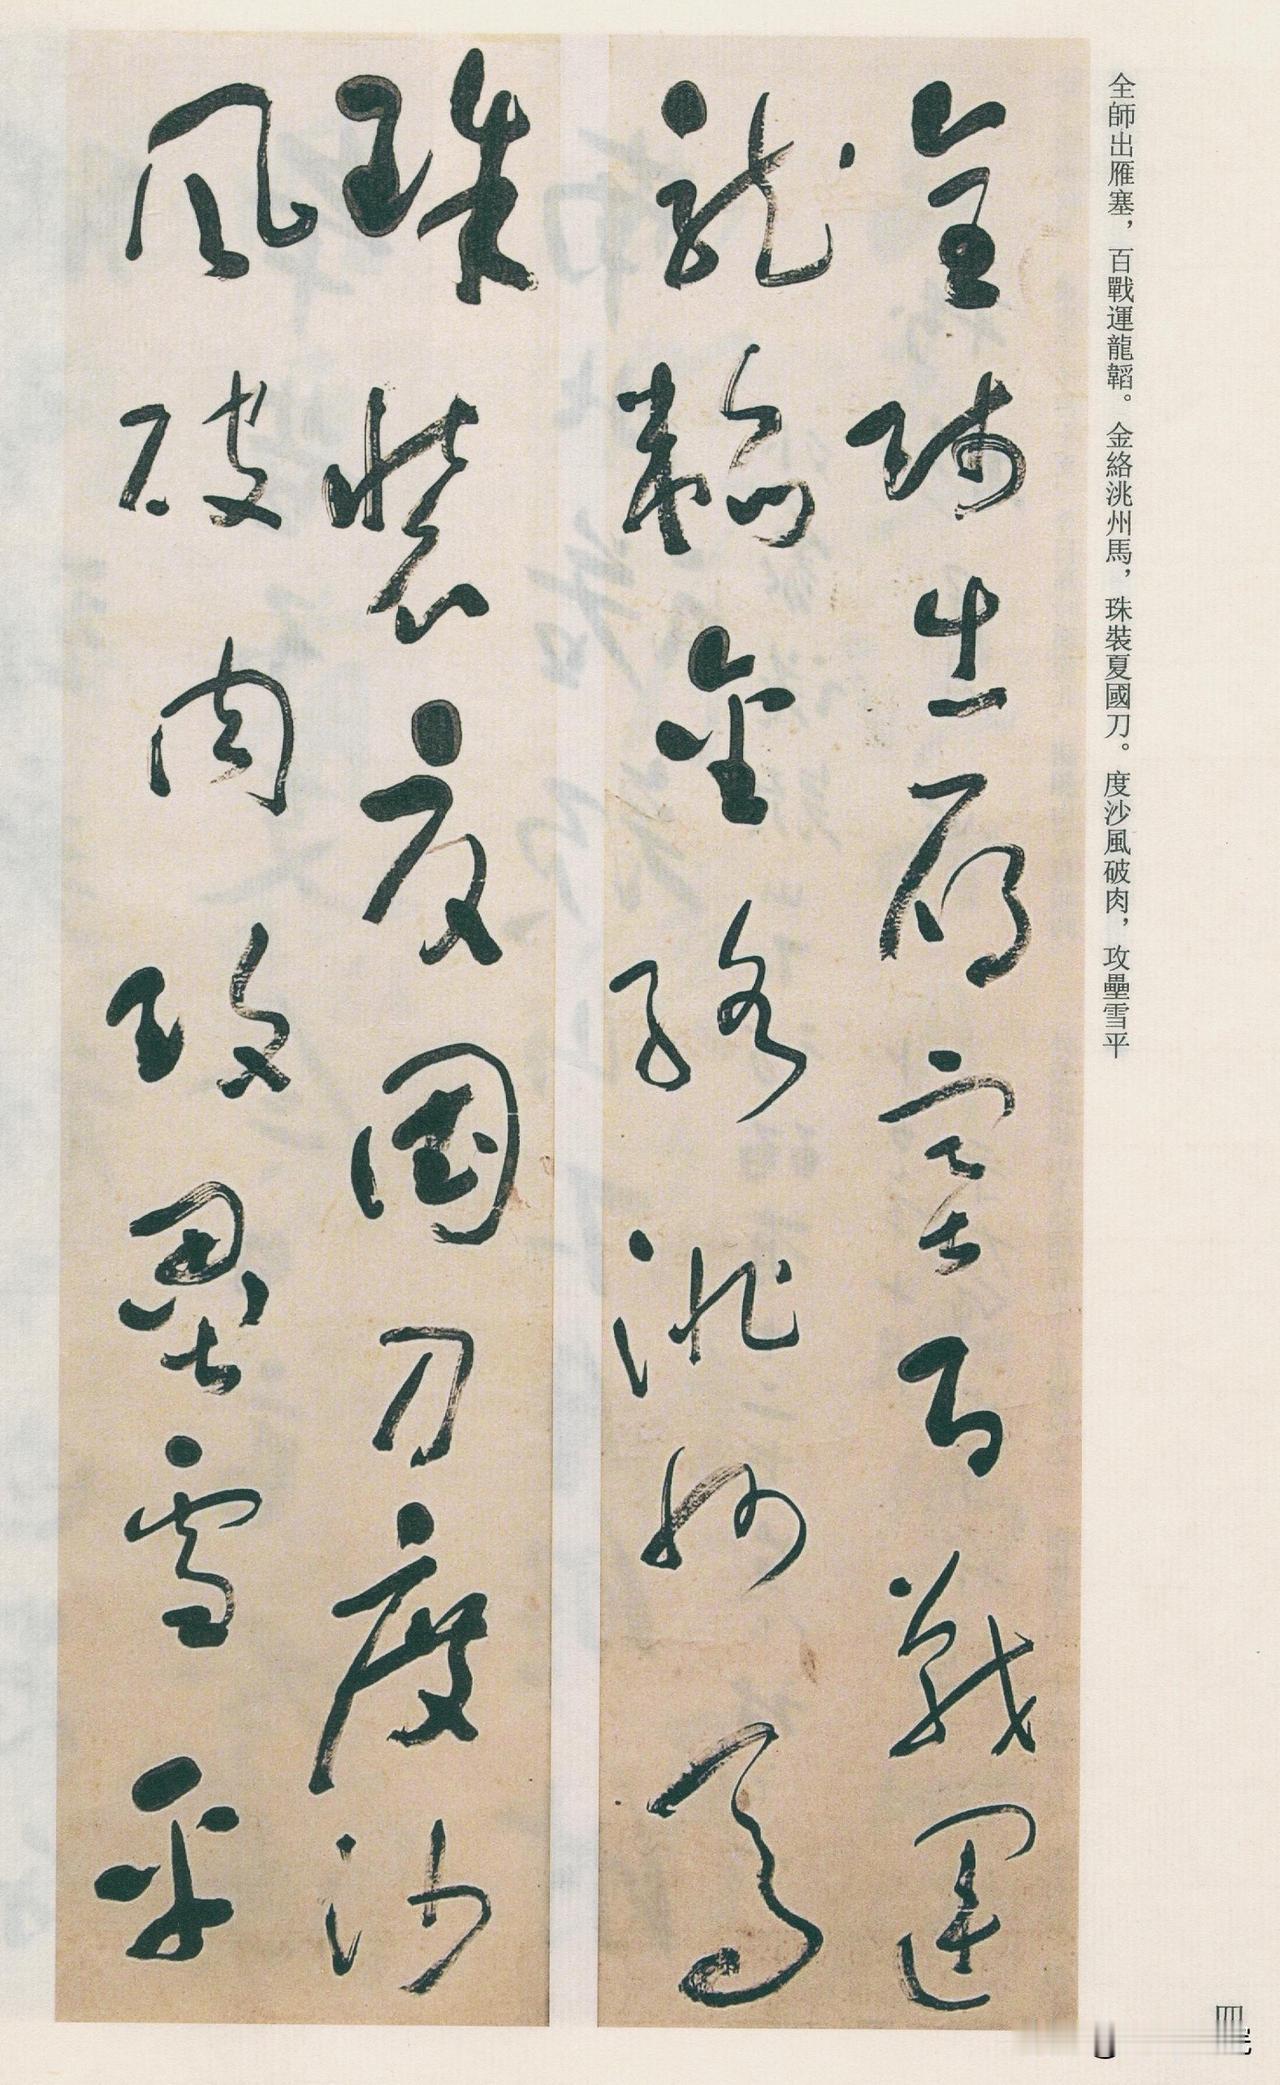 全師出雁塞，百戰運龍韜。金絡洮州馬，珠裝夏國刀。度沙風破肉，攻壘雪平
全師出雁塞百戰運
龍韜金絡洮州馬
珠裝夏國刀度沙
風破肉攻壘雪平
四